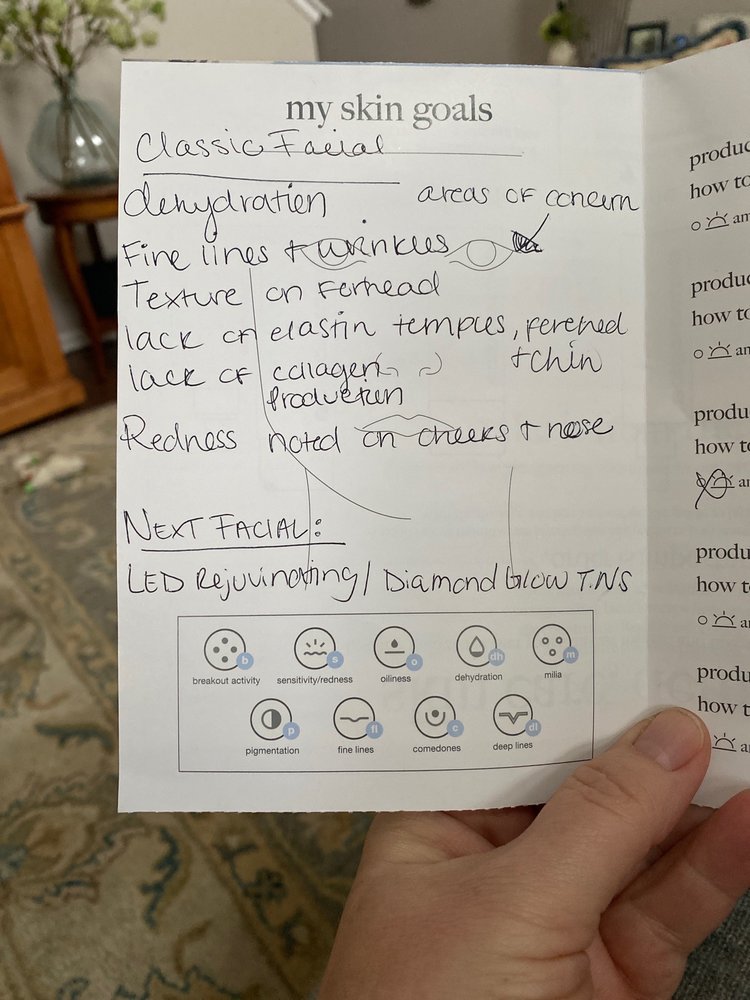 my skin goals
Classic Facial
dehydration areas of concern
Fine lines + wrinkles
Texture on Forhead
lack of elastin temples, forehed
lack of collagen + chin
Production
Redness noted on cheeks + nose
NEXT FACIAL:
LED Rejuvinating / Diamond Glow TNS
b s o dh m
breakout activity sensitivity/redness oiliness dehydration milia
p fl c dl
pigmentation fine lines comedones deep lines
produc
how to
am
produc
how to
am
produ
how to
am
produ
how to
am
produ
how t
am